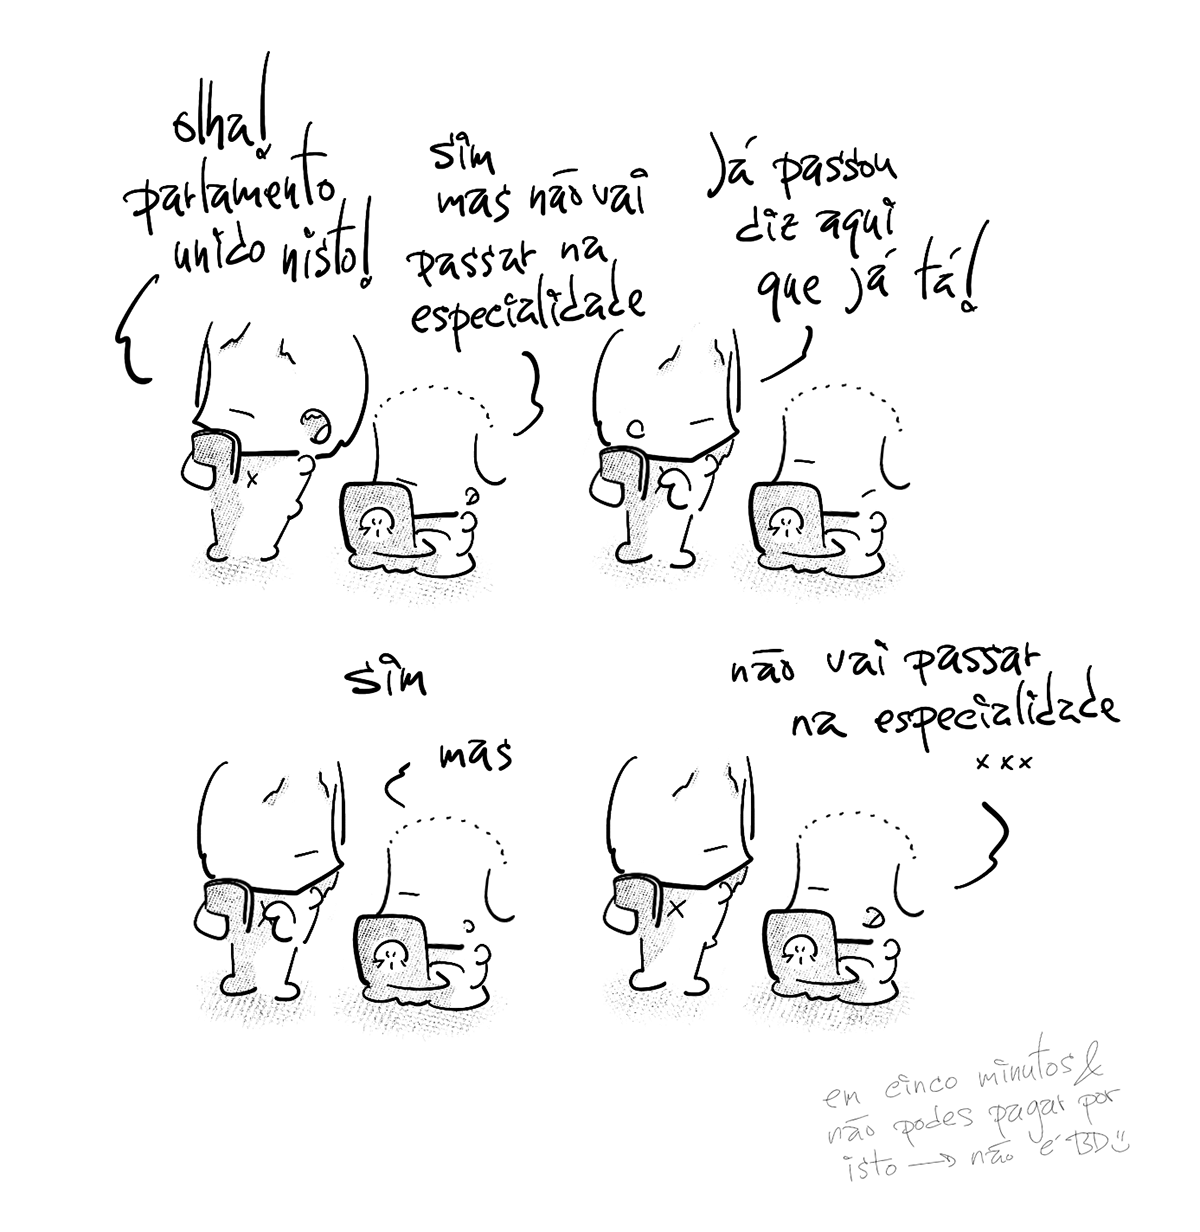 olha!
parlamento
unido nisto!
sim
mas não vai
passar na
especialidade
Já passou
diz aqui
que já tá!
sim
mas
não vai passar
na especialidade
xxx
em cinco minutos &
não podes pagar por
isto → não é BD